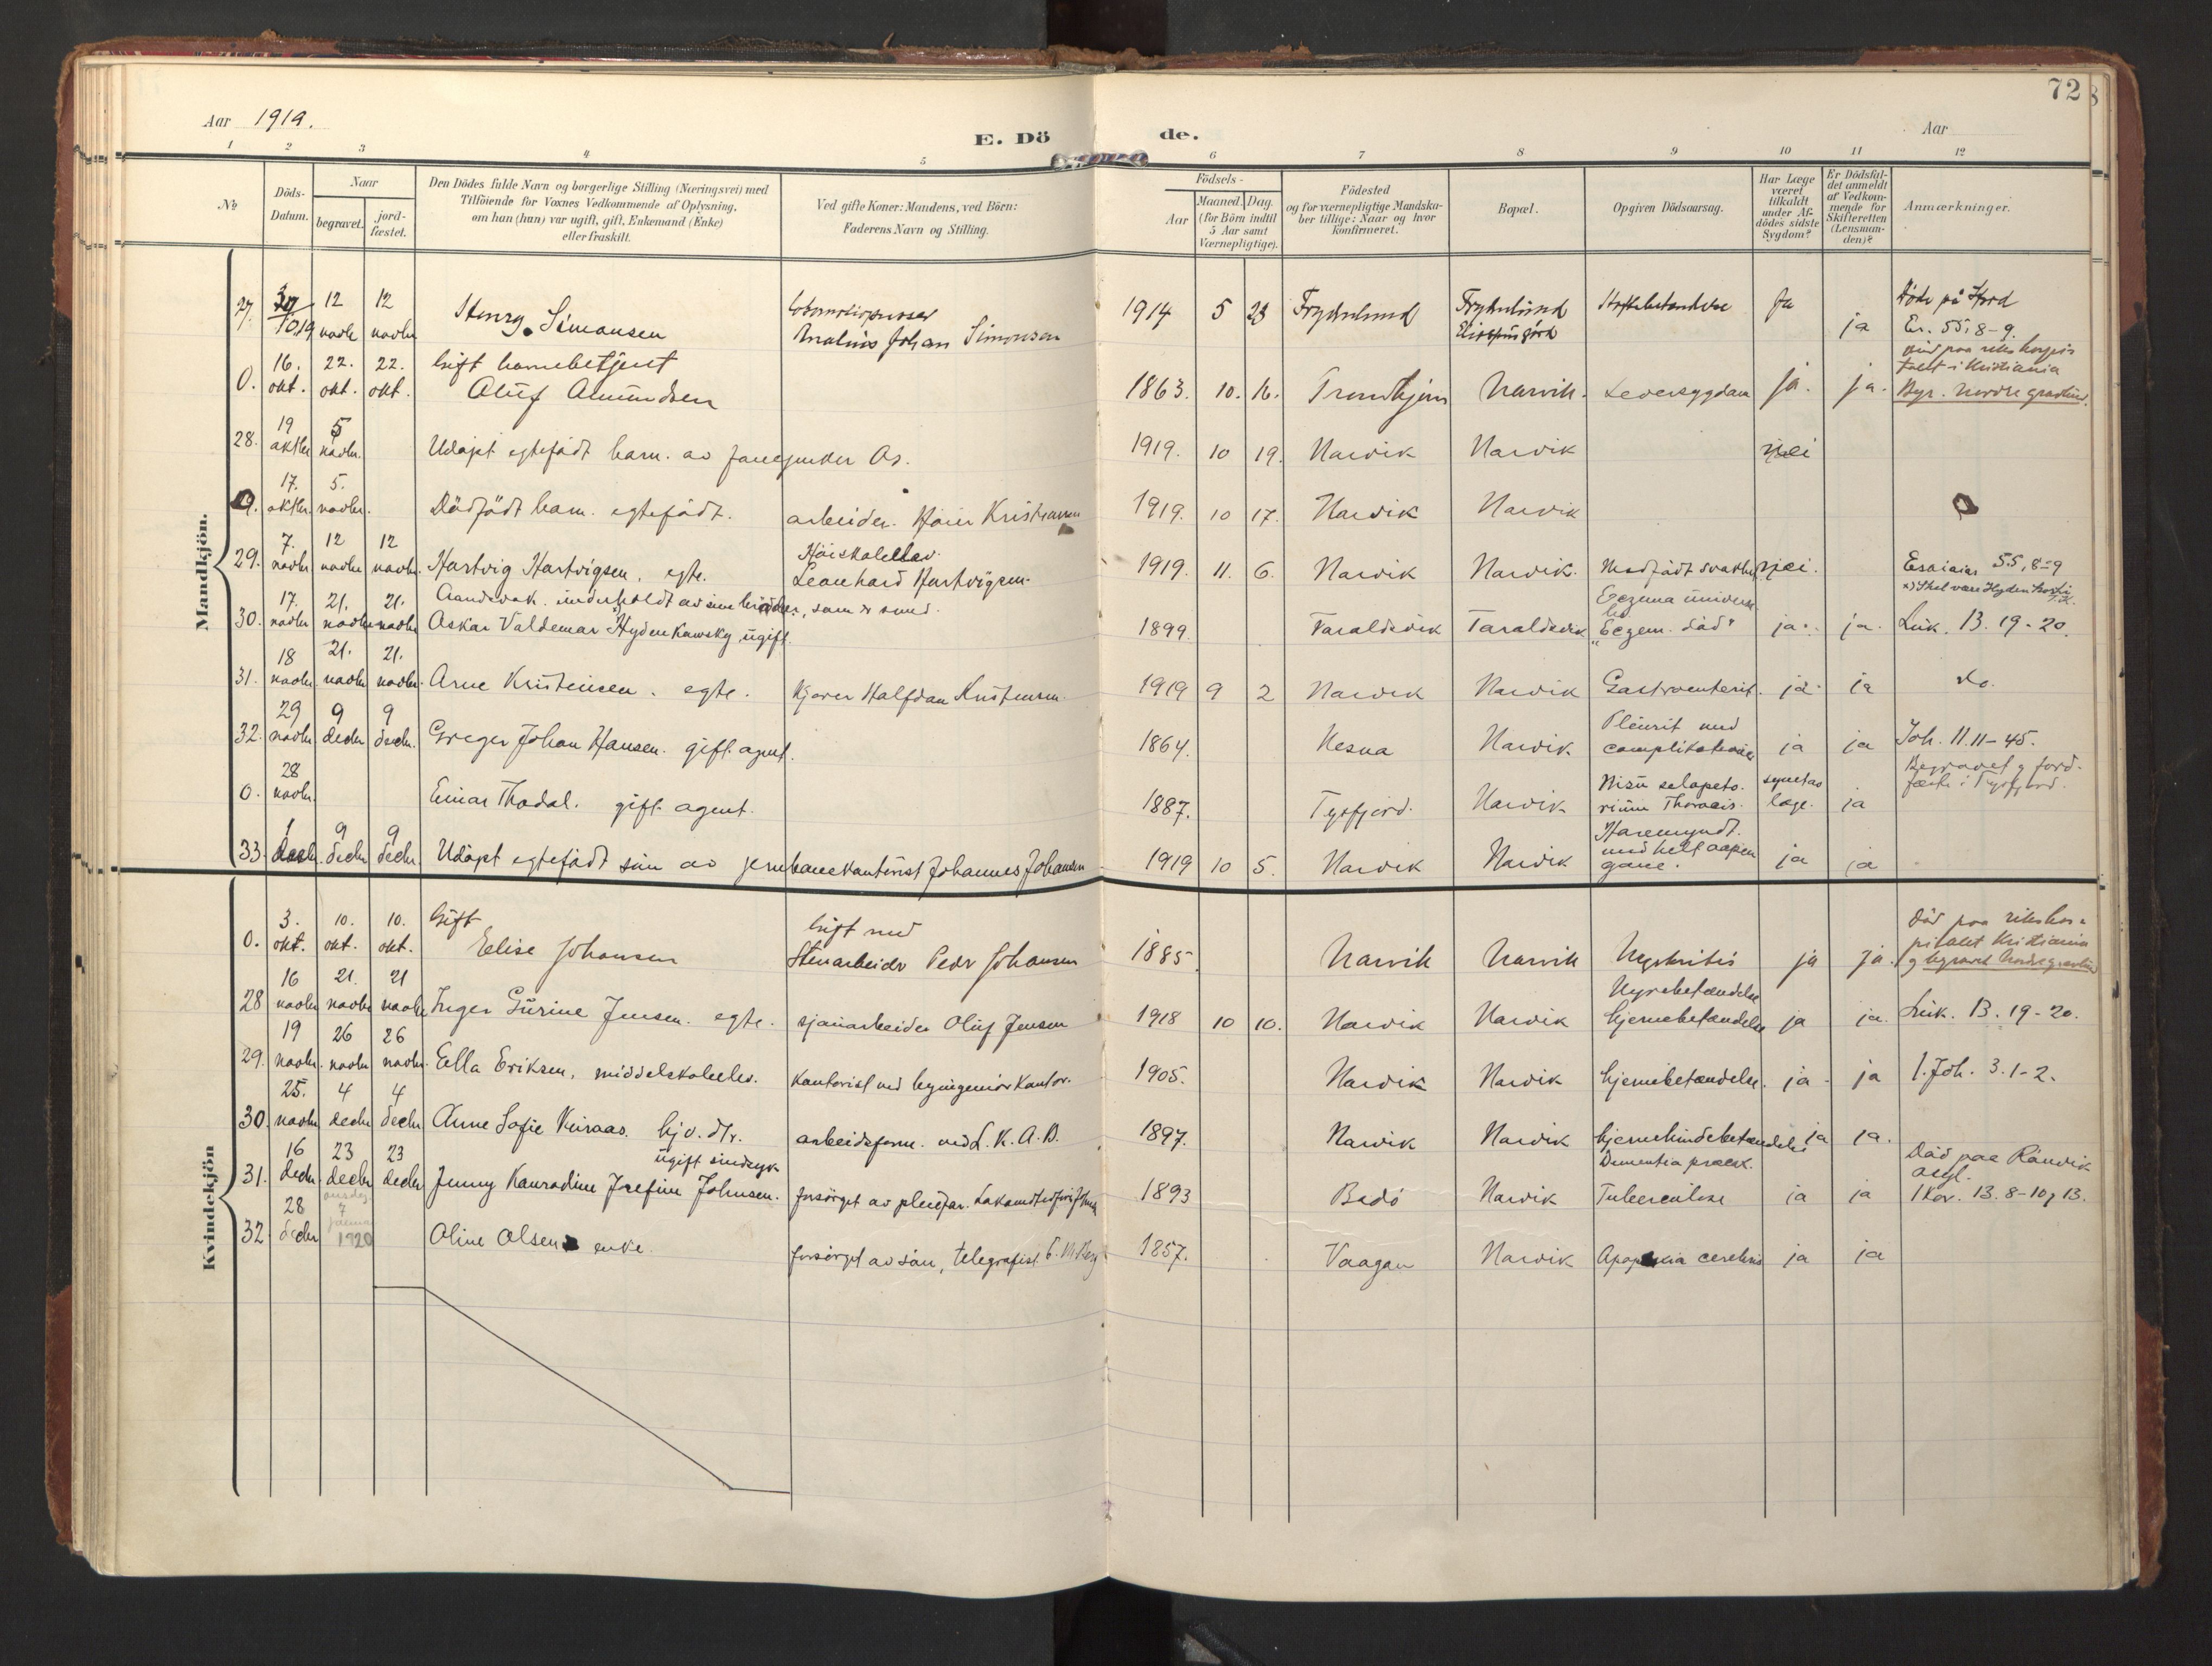 72
Aar 1919.
E. Dö de.
Aar
1 2 3 4 5 6 7 8 9 10 11 12
№
Döds-Datum.
Naar
begravet.
jord-fæstet.
Den Dödes fulde Navn og borgerlige Stilling (Næringsvei) med
Tilföiende for Voxnes Vedkommende af Oplysning,
om han (hun) var ugift, gift, Enkemand (Enke)
eller fraskilt.
Ved gifte Koner: Mandens, ved Börn:
Faderens Navn og Stilling.
Födsels-
Aar
Maaned. Dag.
(for Börn indtil
5 Aar samt
Værnepligtige).
Födested
og for værnepligtige Mandska-
ber tillige: Naar og hvor
konfirmeret.
Bopæl.
Opgiven Dödsaarsag.
Har Læge
været
tilkaldt
under Af-
dödes sidste
Sygdom?
Er Dödsfal-
det anmeldt
af Vedkom-
mende for
Skifteretten
(Lensman-
den)?
Anmærkninger.
Mandkjön.
27. 12 novbr 12 novbr Henry Simonsen Johan Simonsen 1914 5 23 Frydenlund Frydenlund ja ja Es. 55, 8-9.
0. 16. okt. 22. okt. 22. okt. Gift Oluf Amundsen 1863. 10. 16. Trondhjem Narvik. Leversygdom ja. ja. Kristiania Nordre gravlund.
28. 19 oktbr 5 novbr. Udöpt egtefödt barn. av Os. 1919. 10 19. Narvik Narvik nei
17. oktbr. 5. novbr. Dödfödt barn. egtefödt. arbeider. 1919. 10 17. Narvik Narvik
29. 7. novbr 12 novbr 12 novbr. Hartvig Hartvigsen. egte. Leonhard Hartvigsen. 1919. 11. 6. Narvik Narvik. Medfödt nei. Esaias 55, 8-9
30. 17. novbr 21. novbr 21. novbr Aandsvak. underholdt av sine brödre, som er smed.
Oskar Valdemar ugift. 1899. Taraldsvik Taraldsvik Eczema ja. ja. Luk. 13. 19-20.
31. 18 novbr. 21. novbr 21. novbr. Arne Kristensen. egte. Kjører Halfdan Kristensen. 1919 9 2 Narvik Narvik Gastroenterit. ja. ja do.
32. 29 novbr. 9 decbr 9 decbr. Greger Johan Hansen. gift. agent. 1864. Nesna Narvik Pleurit med complikationer ja ja Joh. 11. 11-45.
0. 28 novbr. Einar Thodal. gift. agent. 1887. Tysfjord. Narvik ja Begravet og jord-
fæstet i Tysfjord.
33. 1 decbr. 9 decbr 9 decbr. Udöpt egtefödt sön av jernbanekontorist Johannes Johansen 1919 10 5. Narvik Narvik Haremyndt. med helt aapen gane. ja ja
Kvindekjön
0. 3. okt. 10. okt. 10. okt. Gift Elise Johansen Gift med Stenarbeider Peder Johansen 1885 Narvik Narvik ja ja. Död paa rikshos-
pitalet Kristiania
28 16 novbr 21. novbr 21 novbr Inger Gurine Jensen. egte. sjauarbeider Oluf Jensen 1918 10 10. Narvik Narvik Nyrebetændelse hjernebetændelse ja ja. Luk. 13. 19-20.
29. 19 novbr. 26 novbr 26 novbr. Ella Eriksen, middelskoleelev. kontorist ved byingeniörkontor. 1905. Narvik Narvik hjernebetændelse. ja. ja 1. Joh. 3. 1-2.
30. 25. novbr 4 decbr 4 decbr Anne Sofie hjv. dtr. arbeidsform. ved L.K.A.B. 1897. Narvik Narvik hjernehindebetændelse ja ja.
31. 16 decbr. 23 decbr 23 decbr ugift sindssyk
Jenny Konradine Josefine Johnsen. forsörget av pleiefar. 1893 Bodö Narvik Dementia præcox. Tuberculose ja ja Död paa Rönvik asyl.
1 Kor. 13. 8-10, 13.
32 28 decbr onsdag 7 januar 1920 Oline Olsen enke. forsörget av sön, telegrafist 1857. Vaagan Narvik Apoplexia cerebri ja ja